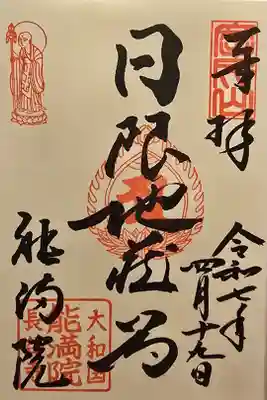 奉拝
令和七年
四月十九日
日限地蔵尊
能満院
大和国
能満院